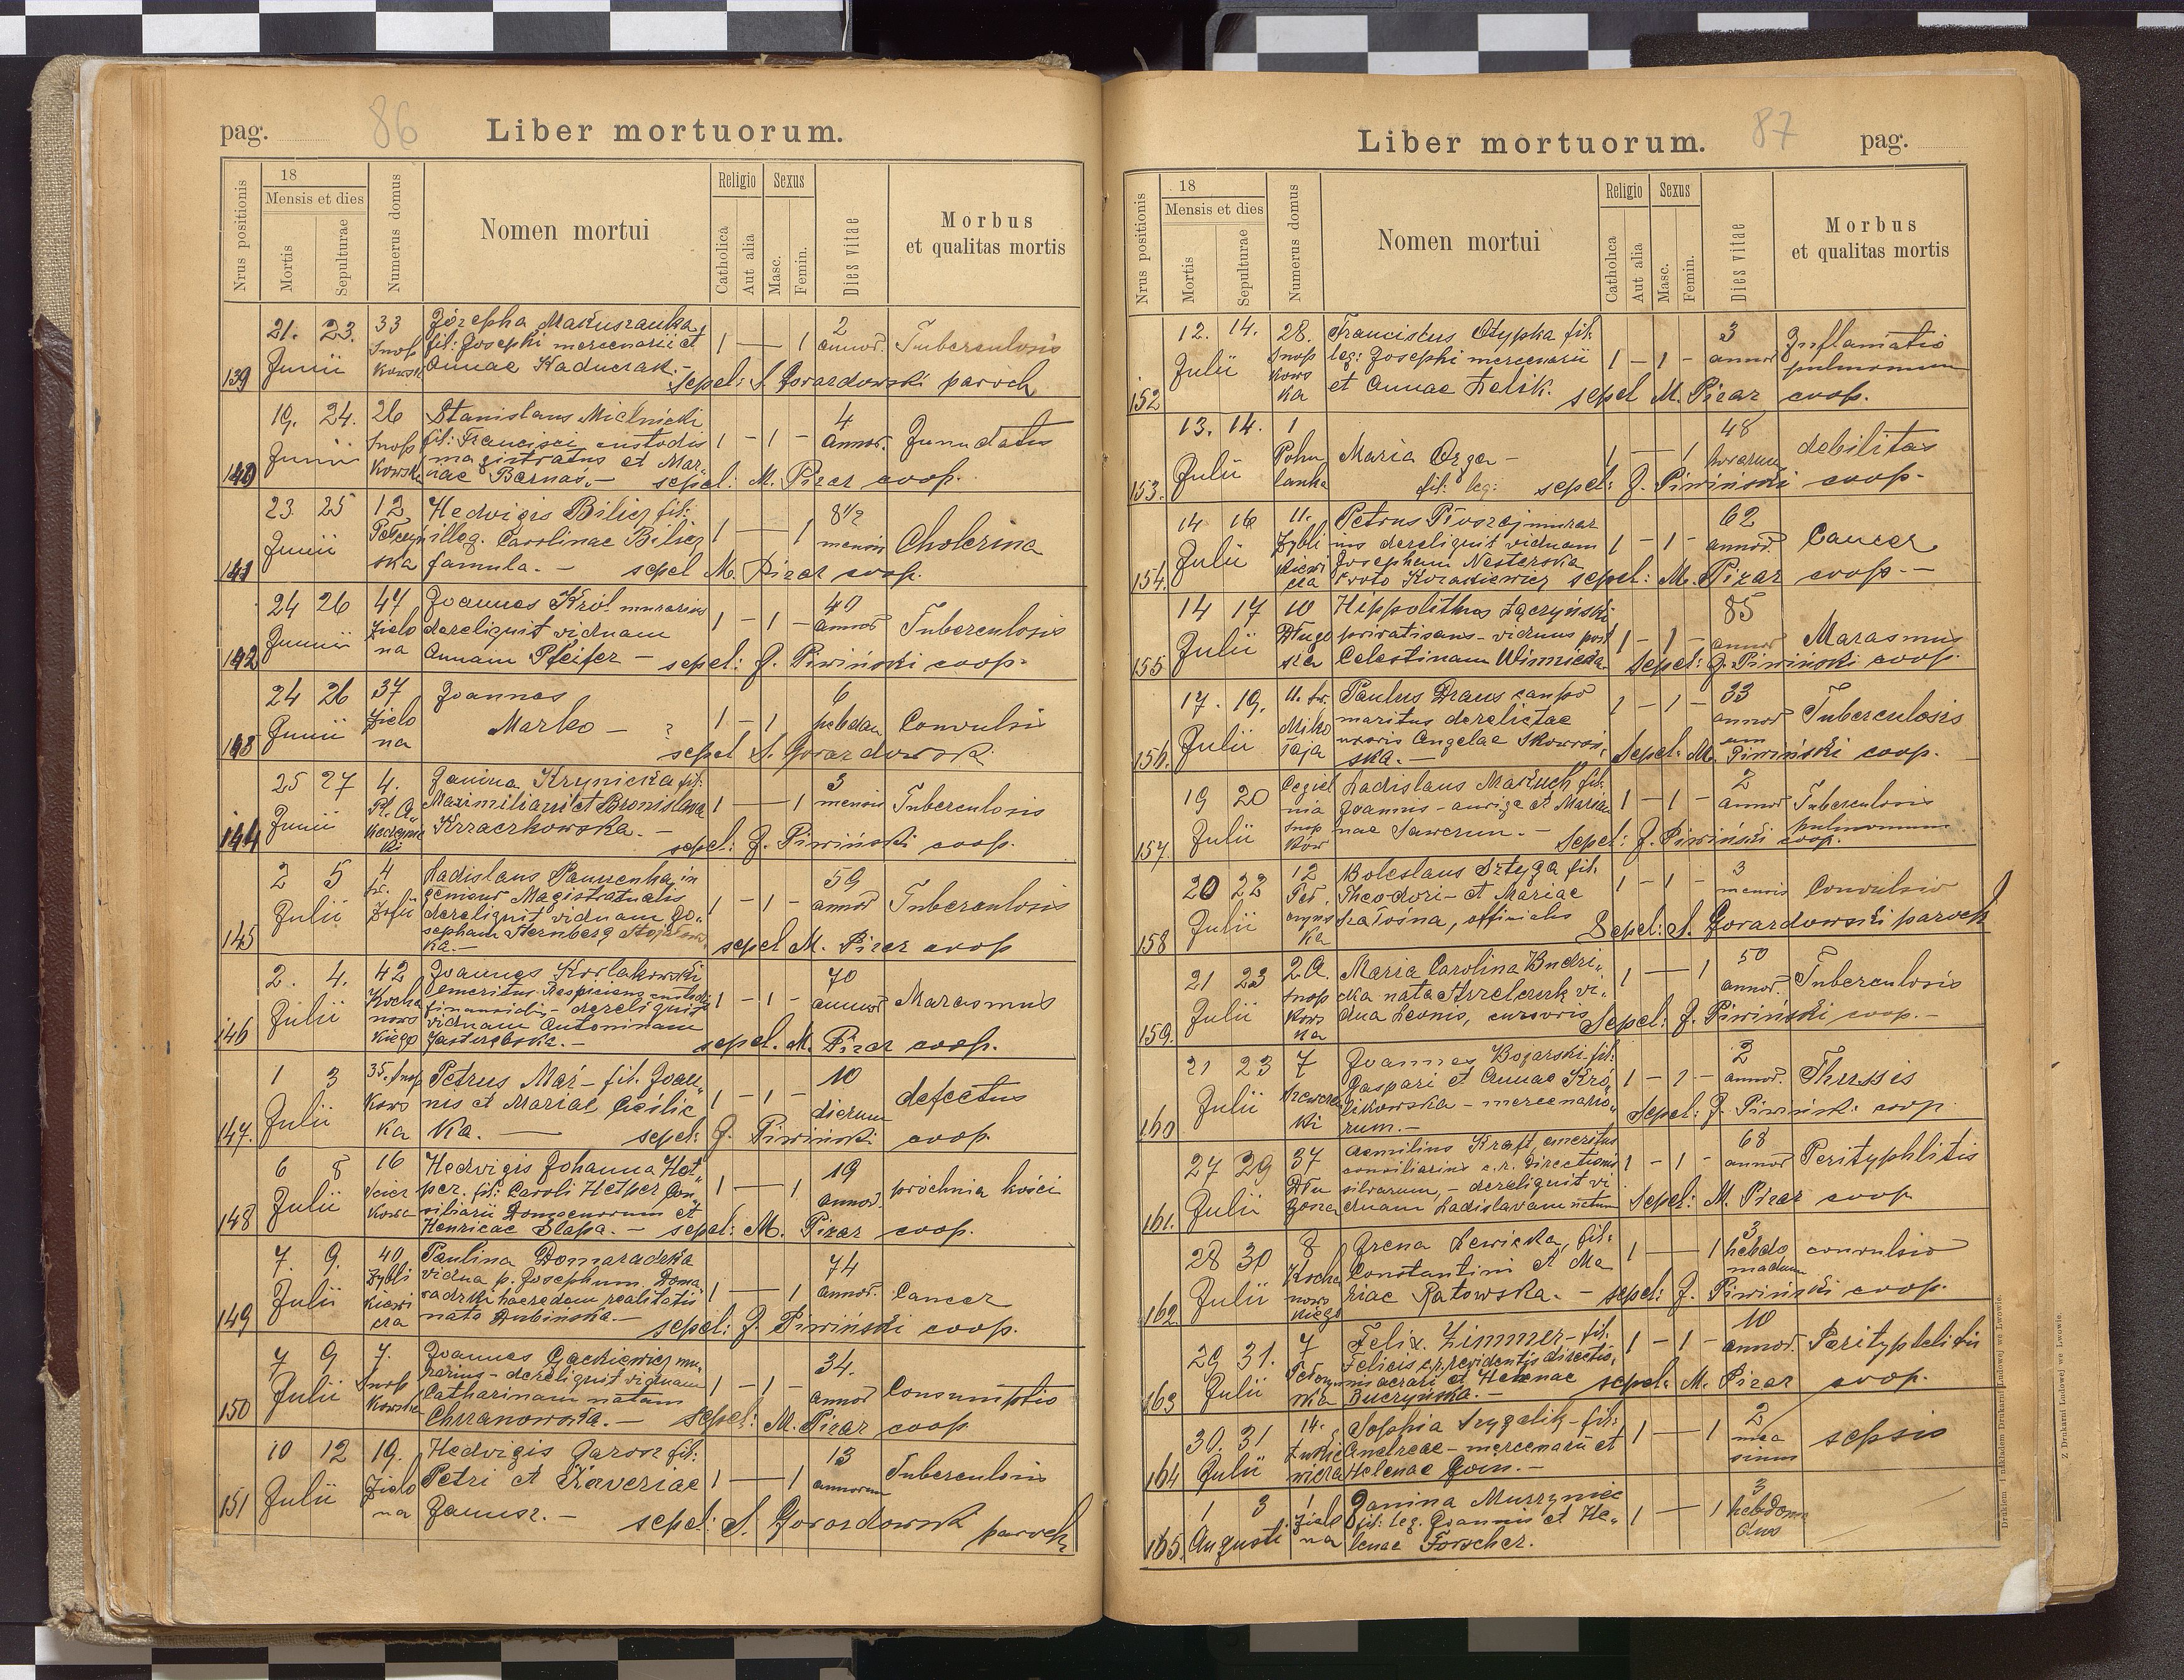 pag.
86
Liber mortuorum.
Nrus positionis
18
Mensis et dies
Mortis
Sepulturae
Numerus domus
Nomen mortui
Religio
Catholica
Aut alia
Sexus
Masc.
Femin.
Dies vitae
Morbus
et qualitas mortis
139
21. 23. Junii
33 Snop kowsk
Józepha Makuszanka,
fil: Josephi mercenarii et
Annae Kaduczak. -
1 — 1
2 annor.
Tuberculosis
sepel: S. Gorazdowski paroch
140
19. 24. Junii
26 Snop kowsk
Stanislaus Mielnicki
fil: Francisci custodis
magistratus et Mar„
nae Barnaś. -
1 - 1 -
4 annor.
sepel: M. Pizar coop.
141
23 25 Junii
12 Pełczyń ska
Hedvigis Bilicz fil:
illeg. Carolinae Bilicz
famula. -
1 — 1
8 1/2 mensis
Cholerina
sepel M. Pizar coop.
142
24 26 Junii
47 Zielo na
Joannes Król murarius
dereliquit viduam
Annam Pfeifer -
1 - 1 -
40 annor
Tuberculosis
sepel: J. Piwiński coop.
143
24 26 Junii
37 Zielo na
Joannes
Marko - ?
1 - 1
6 hebdom
Convulsio
sepel S. Gorazdowski
144
25 27 Junii
4.
Janina Krynicka fil:
Maximiliani et Bronislava
Krzaczkowska. -
1 — 1
3 mensis
Tuberculosis
sepel: J. Piwiński coop.
145
2 5 Julii
4 św. Zofii
Ladislaus Pannenka in
Magistratualis
dereliquit viduam Jo„
sepham Sternberg
ka. -
1 - 1 -
59 annor
Tuberculosis
sepel M. Pizar coop
146
2. 4. Julii
42 Kocha nows kiego
Joannes Korlakowski
emeritus Respiciens custodi
dereliquit
viduam Antoninam
Jastrzębska. -
1 - 1 -
70 annor
Marasmus
sepel. M. Pizar coop.
147.
1 3 Julii
35. Snop kows ka
Petrus Maź - fil. Joan„
nis et Mariae Cieślic
ka. —
1 - 1 -
10 dierum
defectus
sepel: J. Piwiński coop.
148
6 8 Julii
16
Hedwigis Johanna Het„
per. fil: Caroli Hetper Con„
siliarii Domaenorum et
Henricae Slapa. -
1 — 1
19 annor.
próchnia kości
sepel: M. Pizar coop.
149
7. 9. Julii
40. Zybli kiewi cza
Paulina Domaradzka
vidua p. Josephum Doma„
radzki haeredem realitatis
nata Dubińska. -
1 — 1
74 annor.
Cancer
sepel: J. Piwiński coop.
150
7 9 Julii
7. Snop kowska
Joannes Gackiewicz mu„
rarius - dereliquit viduam
Catharinam natam
Chrzanowska. -
1 - 1 -
34. annor
Consumptio
sepel: M. Pizar coop
151
10 12 Julii
19. Zielo na
Hedvigis Jarosz fil:
Petri et Xaveriae
Janusz. -
1 — 1
13 annorum
Tuberculosis
sepel: S. Gorazdowski paroch
Liber mortuorum.
87
pag.
Nrus positionis
18
Mensis et dies
Mortis
Sepulturae
Numerus domus
Nomen mortui
Religio
Catholica
Aut alia
Sexus
Masc.
Femin.
Dies vitae
Morbus
et qualitas mortis
152
12. 14. Julii
28. Snop kows ka
Franciscus Otypka fil.
leg: Josephi mercenarii
et Annae Lelik.
1 - 1 -
3 annor
Inflamatio
pulmonum
sepel M. Pizar coop.
153.
13. 14. Julii
1 Pohu lanka
Maria Orga -
fil: leg:
1 — 1
48 horarum
debilitas
sepel: J. Piwiński coop.
154.
14 16 Julii
11. Zybli kiewi cza
Petrus murar
ius dereliquit viduam
Josepham Nesterska
1 - 1 -
62 annor.
Cancer
sepel: M. Pizar coop. -
155
14 17 Julii
10 Długo sza
Hippolithus Łączyński
privatisans - viduus post
Celestinam Winnicka
1 - 1 -
85 annor
Marasmus
sepel: J. Piwiński coop.
156.
17. 19. Julii
11. św. Miko łaja
Paulus Draus campo
maritus derelictae
uxoris Angelae Skowroń„
ska. -
1 - 1 -
33 annor
Tuberculosis
Sepel. M. Piwiński coop.
157.
19 20 Julii
Cegiel nia Snop ków
Ladislaus Makuch fil.
Joannis - auriga et Maria
nae Sawczun. -
1 - 1 -
2 annor
Tuberculosis
pulmonum
Sepel: J. Piwiński coop.
158
20 22 Julii
12 Peł, czyńs ka
Boleslaus Sztyga fil.
Theodori - et Mariae
officialis
1 - 1 -
3 mensis
Convulsio
Sepel: S. Gorazdowski paroch
159.
21 23 Julii
2A. Snop kows ka
Maria Carolina Budzi„
cka nata Strzelczuk vi„
dua Leonis, cursoris
1 — 1
50 annor.
Tuberculosis
Sepel: J. Piwiński coop. -
160
21 23 Julii
7
Joannes Bojarski fil:
Gaspari et Annae Kró„
likowska - mercenario„
rum. -
1 - 1 -
2 annor.
Sepel: J. Piwiński coop
161.
27 29 Julii
37 Dłu gosza
Aemilius Kraft, emeritus
consiliarius c.r. Directionis
silvarum, - dereliquit vi
duam Ladislavam natam
1 - 1 -
68 annor
Perityphlitis
Sepel: M. Pizar coop
162.
28 30 Julii
8 Kocha nows kiego
Irena Lewicka, fil:
Constantini et Ma
riae Ratowska. -
1 — 1
3 hebdo madum
convulsio
sepel: J. Piwiński coop.
163
29 31. Julii
7
Felix. Zimmer - fil:
Felicis c.r. revidentis directio„
nis aerari et Helenae
Buczyńska. -
1 - 1 -
10 annor.
Perityphlitis
sepel: M. Pizar coop.
164
30. 31 Julii
14.
Sophia Szygelik - fil:
Andreae - mercenarii et
Helenae Goin. -
1 — 1
2 mea sium
sepsis
165.
1 3 Augusti
1 Zielo na
Janina Murzyniec
fil: leg. Joannis et He„
lenae Forscher.
1 — 1
3 hebdoma dus
Drukiem i nakładem Drukarni Ludowej we Lwowie.
Z Drukarni Ludowej we Lwowie.